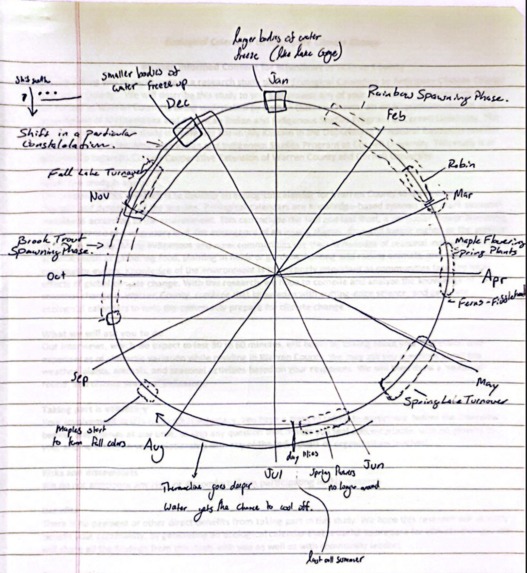 Larger bodies of water
freeze (like lake George)
Jan
smaller bodies of
water freeze up
Dec
Rainbow Spawning Phase.
Feb
Shift in a particular
constalolation.
Robin
Fall Lake Turnover
Nov
Mar
Brook Trout
Spawning Phase
Maple Flowering
Spring Plants
Oct
Apr
Ferns - Fiddlehead
Sep
May
Spring Lake Turnover
Maples start
to turn fall colors
Aug
day
Jul
Spring flowers
no longer around
Jun
Thermocline goes deeper
Water gets the chance to cool off.
last all summer